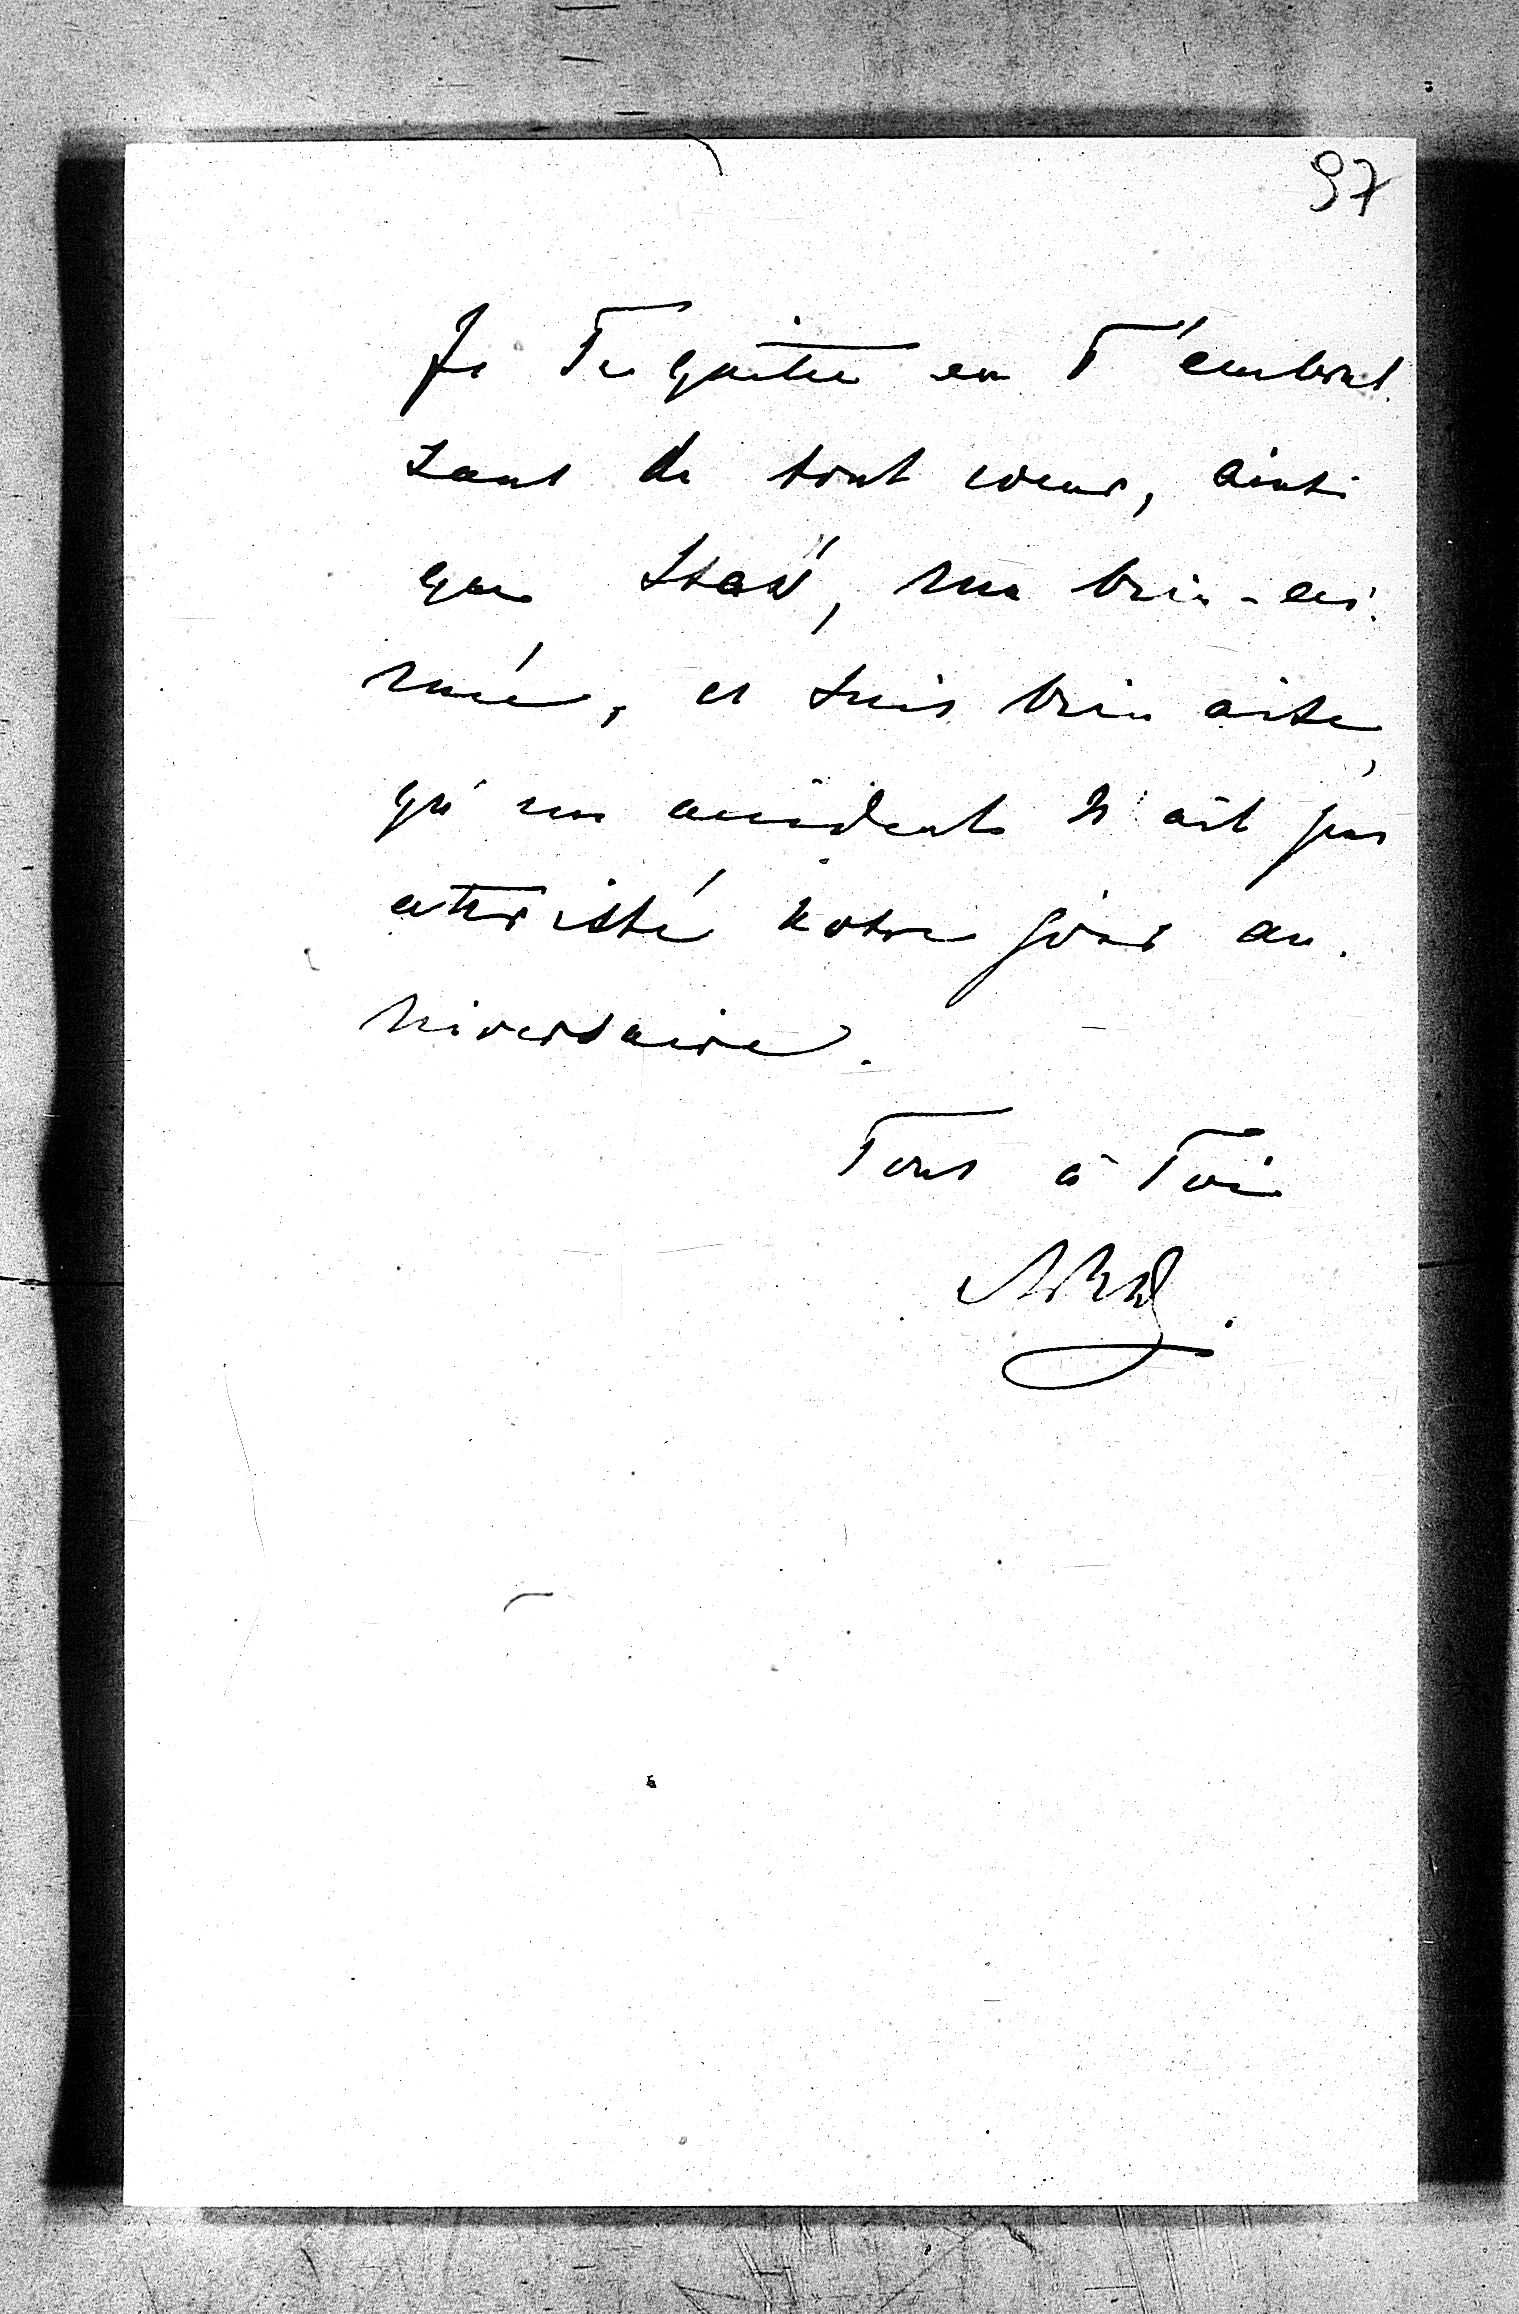 97
Je Te quitte en T'embras
sant de tout cœur, ainsi
que Staś, ma bien-ai
mée, et suis bien aise,
qu'un accident n'ait pas
attristé notre jour an
niversaire.
Tout à Toi